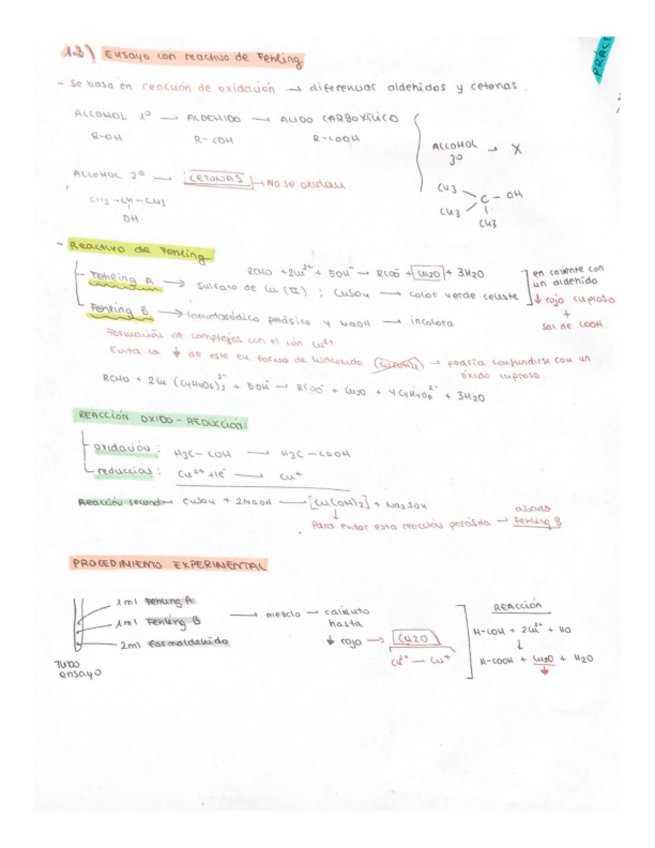 1.3) Ensayo con reactivo de Fehling
PRÁC
- Se basa en reacción de oxidación → diferenciar aldehidos y cetonas.
ALCOHOL 1º → ALDEHIDO → ACIDO CARBOXÍLICO
R-OH R-COH R-COOH
ALCOHOL 3º → X
ALCOHOL 2º → CETONAS → No se oxidan
CH3-CH-CH3
OH
CH3
CH3 C - OH
CH3
- Reactivo de Fehling
RCHO + 2Cu2+ + 5OH- → RCOO- + Cu2O + 3H2O
Fehling A → Sulfato de Cu (II) ; CuSO4 → color verde celeste
en caliente con
un aldehido
↓ rojo cuproso
+
sal de COOH.
Fehling B → tartrato sódico potásico y NaOH → incolora
Formación de complejos con el ión Cu2+
Evita la ↓ de este en forma de hidróxido (Cu(OH)2) → podría confundirse con un
óxido cuproso.
RCHO + 2Cu (C4H4O6)2 2- + 5OH- → RCOO- + Cu2O + 4C4H4O6 2- + 3H2O
REACCIÓN OXIDO-REDUCCIÓN
oxidación: H3C-COH → H3C-COOH
reducción: Cu2+ + 1e- → Cu+
Reacción secund → CuSO4 + 2NaOH → [Cu(OH)2] + Na2SO4
↓
Para evitar esta reacción parásita → añado
Fehling B
PROCEDIMIENTO EXPERIMENTAL
1ml Fehling A
1ml Fehling B
2ml Formaldehido
Tubo
ensayo
→ mezclo → caliento
hasta
↓ rojo → Cu2O
Cu2+ → Cu+
REACCIÓN
H-COH + 2Cu2+ + HO
↓
H-COOH + Cu2O + H2O
↓